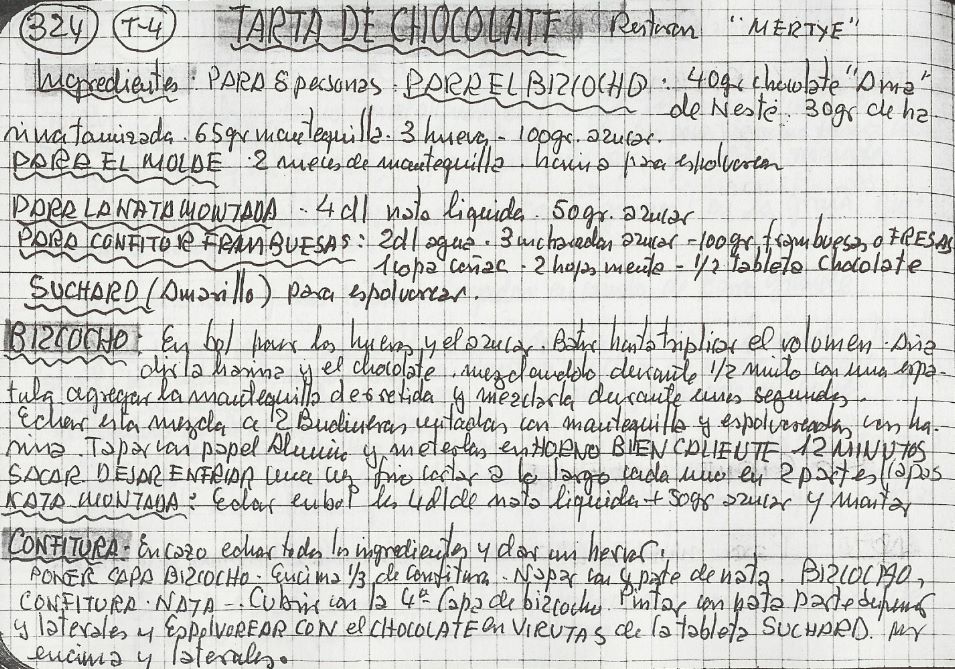 324 T-4 TARTA DE CHOCOLATE Resturan "MERTXE"
Ingredientes: PARA 8 personas: PARA EL BIZCOCHO: 40gr chocolate
de Nesté. 30gr de ha
rina tamizada. 65gr mantequilla. 3 huevos - 100gr. azucar.
PARA EL MOLDE. 2 nueces de mantequilla. harina para espolvorear
PARA LA NATA MONTADA. - 4 dl nata liquida. 50gr. azucar
PARA CONFITUR FRAMBUESAS: 2dl agua. 3 cucharadas azucar - 100gr. frambuesas o FRESAS
1 copa coñac. 2 hojas menta - 1/2 tableta chocolate
SUCHARD (Amarillo) para espolvorear.
BIZCOCHO: En bol poner los huevos y el azucar. Batir hasta triplicar el volumen. Aña
dir la harina y el chocolate. mezclandolo durante 1/2 minuto con una espa-
tula agregar la mantequilla derretida y mezclarla durante unos segundos.
Echar esta mezcla a 2 Budineras untadas con mantequilla y espolvoreadas con ha-
rina. Tapar con papel Aluminio y meterlas en HORNO BIEN CALIENTE 12 MINUTOS
SACAR DEJAR ENFRIAR una vez frio cortar a lo largo cada uno en 2 partes (capas
NATA MONTADA: Echar en bol los 4 dl de nata liquida + 50gr azucar y montar
CONFITURA - En cazo echar todos los ingredientes y dar un hervor.
PONER CAPA BIZCOCHO. Encima 1/3 de confitura. Napar con 1/4 parte de nata. BIZCOCHO,
CONFITURA. NATA -. Cubrir con la 4ª Capa de bizcocho. Pintar con nata parte superior
y laterales y ESPOLVOREAR CON el CHOCOLATE en VIRUTAS de la tableta SUCHARD. por
encima y laterales.